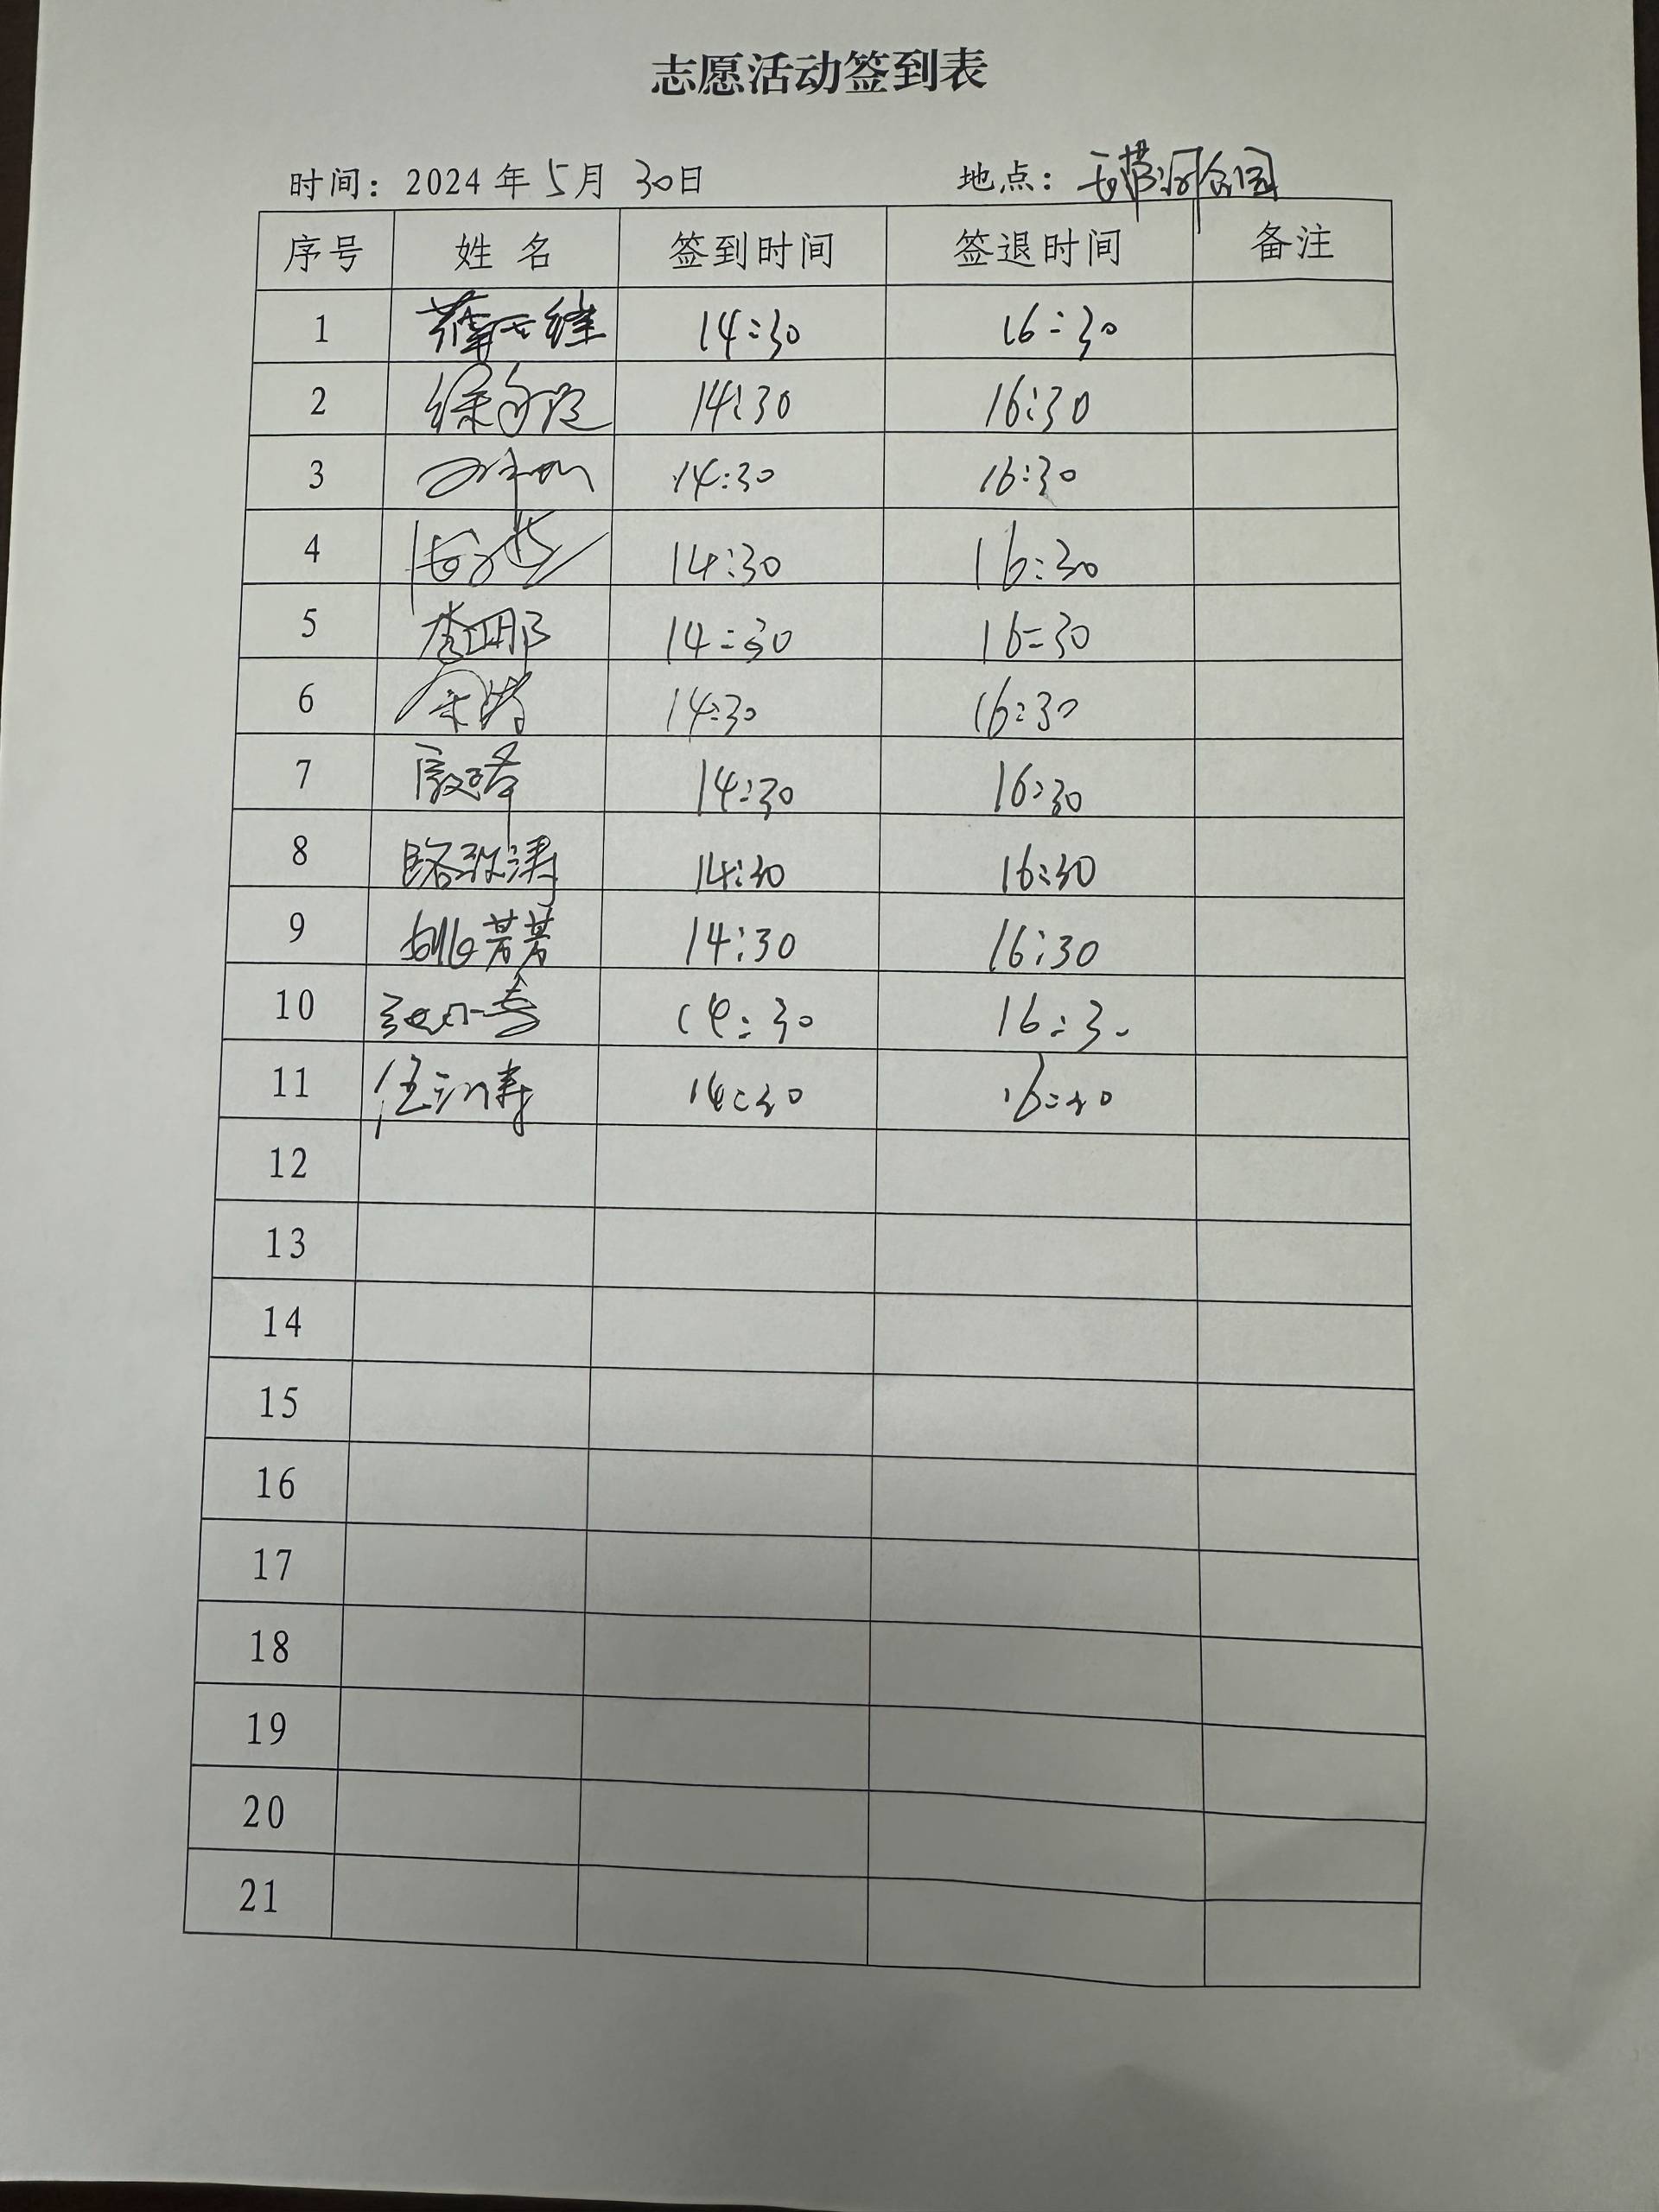 志愿活动签到表
时间：2024年5月30日 地点：玉带河公园
序号 姓名 签到时间 签退时间 备注
1 14:30 16:30
2 14:30 16:30
3 14:30 16:30
4 14:30 16:30
5 李娜 14:30 16:30
6 14:30 16:30
7 14:30 16:30
8 14:30 16:30
9 姚芳芳 14:30 16:30
10 14:30 16:30
11 14:30 16:30
12
13
14
15
16
17
18
19
20
21